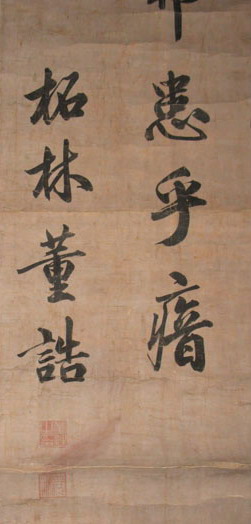 患乎瘖
柘林董誥